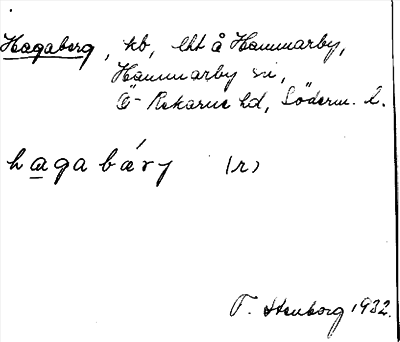 Hagaberg, kb, lht å Hammarby,
Hammarby sn,
Ö-Rekarne hd, Söderm. L.
haga bárj (r)
T. Stenborg 1932.